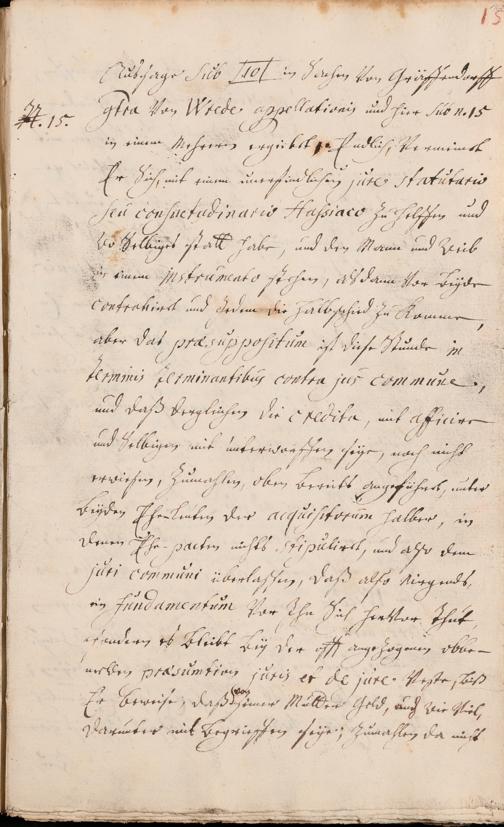 15
Aussage sub 101 in Sachen von Gräffendorff
N. 15. gtra von Wrede appellationis und hier sub n. 15
in einem Mehrern ergiebet, Endlich, Vermeinet
Er sich mit einem unerfindlichen jure statutario
seu consuetudinario Hassiaco zu helffen und
wo selbiges statt habe, und den Mann und Weib
in einem Instrumento stehen, alsdann vor beyde
contrahirt und jedem die Halbscheid zu komme,
aber das præsuppositum ist diese Stunde in
terminis terminantibus contra jus commune,
und daß dergleichen die credita, mit afficire
und selbigen mit unterworffen seye, noch nicht
erwiesen, zumahlen, oben bereits angeführet, unter
beyden Eheleuten der acquisitorum halber, in
denen Ehe-pacten nichts stipulirt, und also dem
juri communi überlassen, daß also nirgends,
ein fundamentum vor Ihn sich hervor thut,
sondern es bleibt bey der offt angezogenen
præsumtion juris et de jure veste, biß
Er beweise, daß seiner Mutter Geld, und wie viel,
darunter mit begriffen seye, zumahlen da nicht